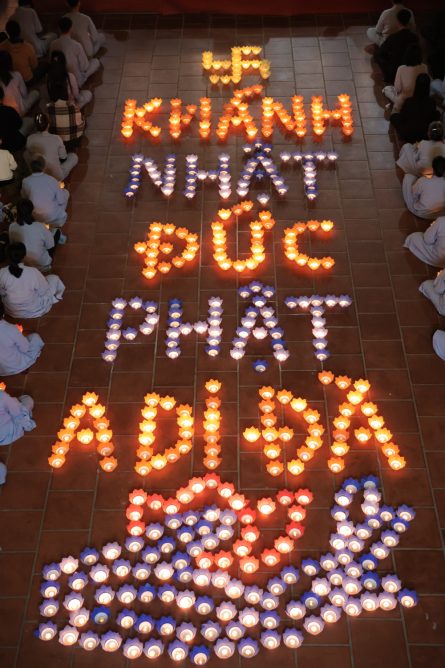 卍
KHÁNH
NHẬT
ĐỨC
PHẬT
ADIĐÀ